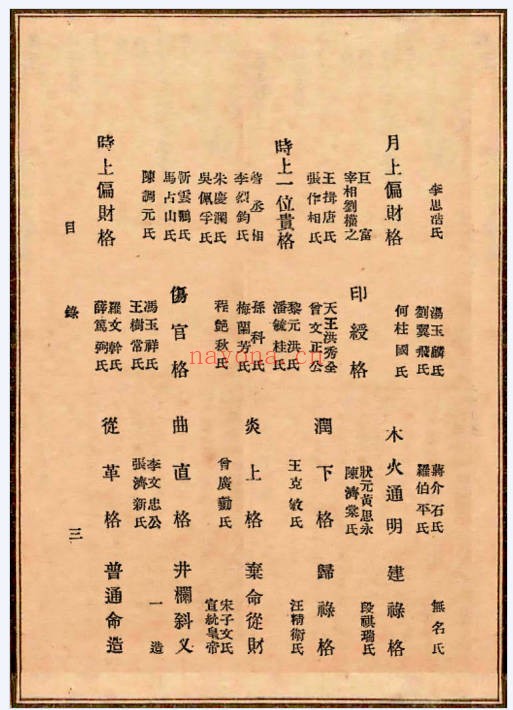 李思浩氏
月上偏財格
巨富
宰相劉權之
時上一位貴格
王揖唐氏
張作相氏
丞相
李烈鈞氏
朱慶瀾氏
吳佩孚氏
靳雲鶚氏
馬占山氏
陳調元氏
時上偏財格
湯玉麟氏
劉翼飛氏
何柱國氏
印綬格
天王洪秀全
曾文正公
黎元洪氏
潘毓桂氏
孫科氏
梅蘭芳氏
程艷秋氏
傷官格
馮玉祥氏
王樹常氏
羅文幹氏
薛篤弼氏
蔣介石氏
羅伯平氏
木火通明
狀元黃思永
陳濟棠氏
潤下格
王克敏氏
炎上格
曾廣勷氏
曲直格
李文忠公
張濟新氏
從革格
無名氏
建祿格
段祺瑞氏
歸祿格
汪精衛氏
棄命從財
宋子文氏
宣統皇帝
井欄斜叉
一造
普通命造
目錄
三
nayona.cn